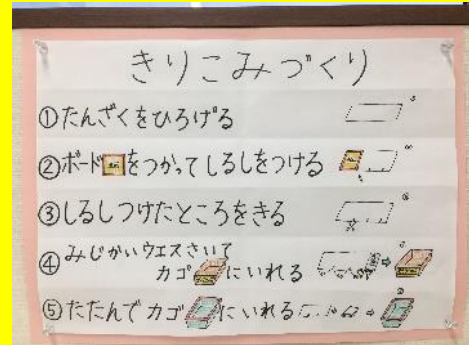 きりこみづくり
①たんざくをひろげる
②ボードをつかってしるしをつける
③しるしつけたところをきる
④みじかいウエスさいて
カゴにいれる
⑤たたんでカゴにいれる